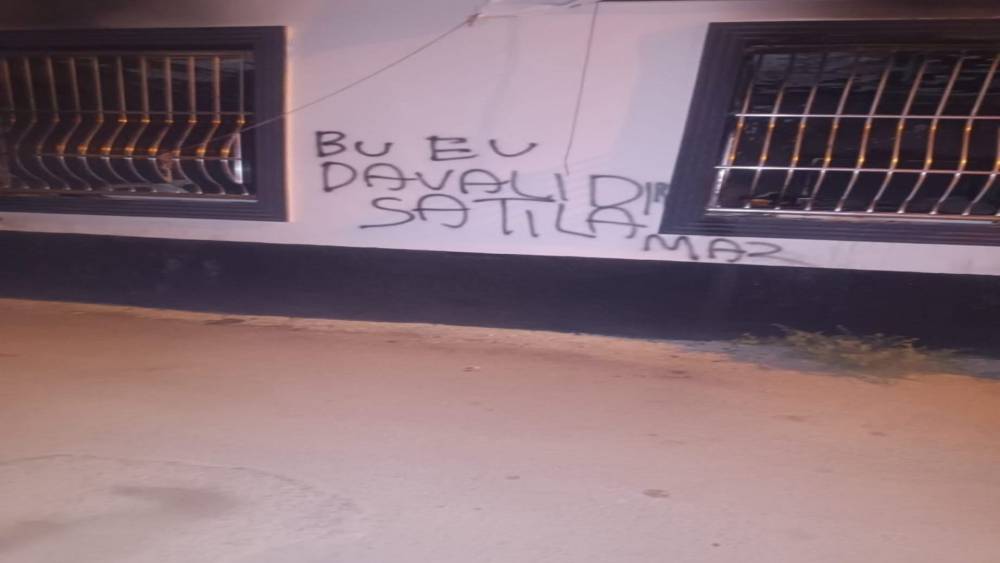 BU EV
DAVALIDIR
SATILA
MAZ